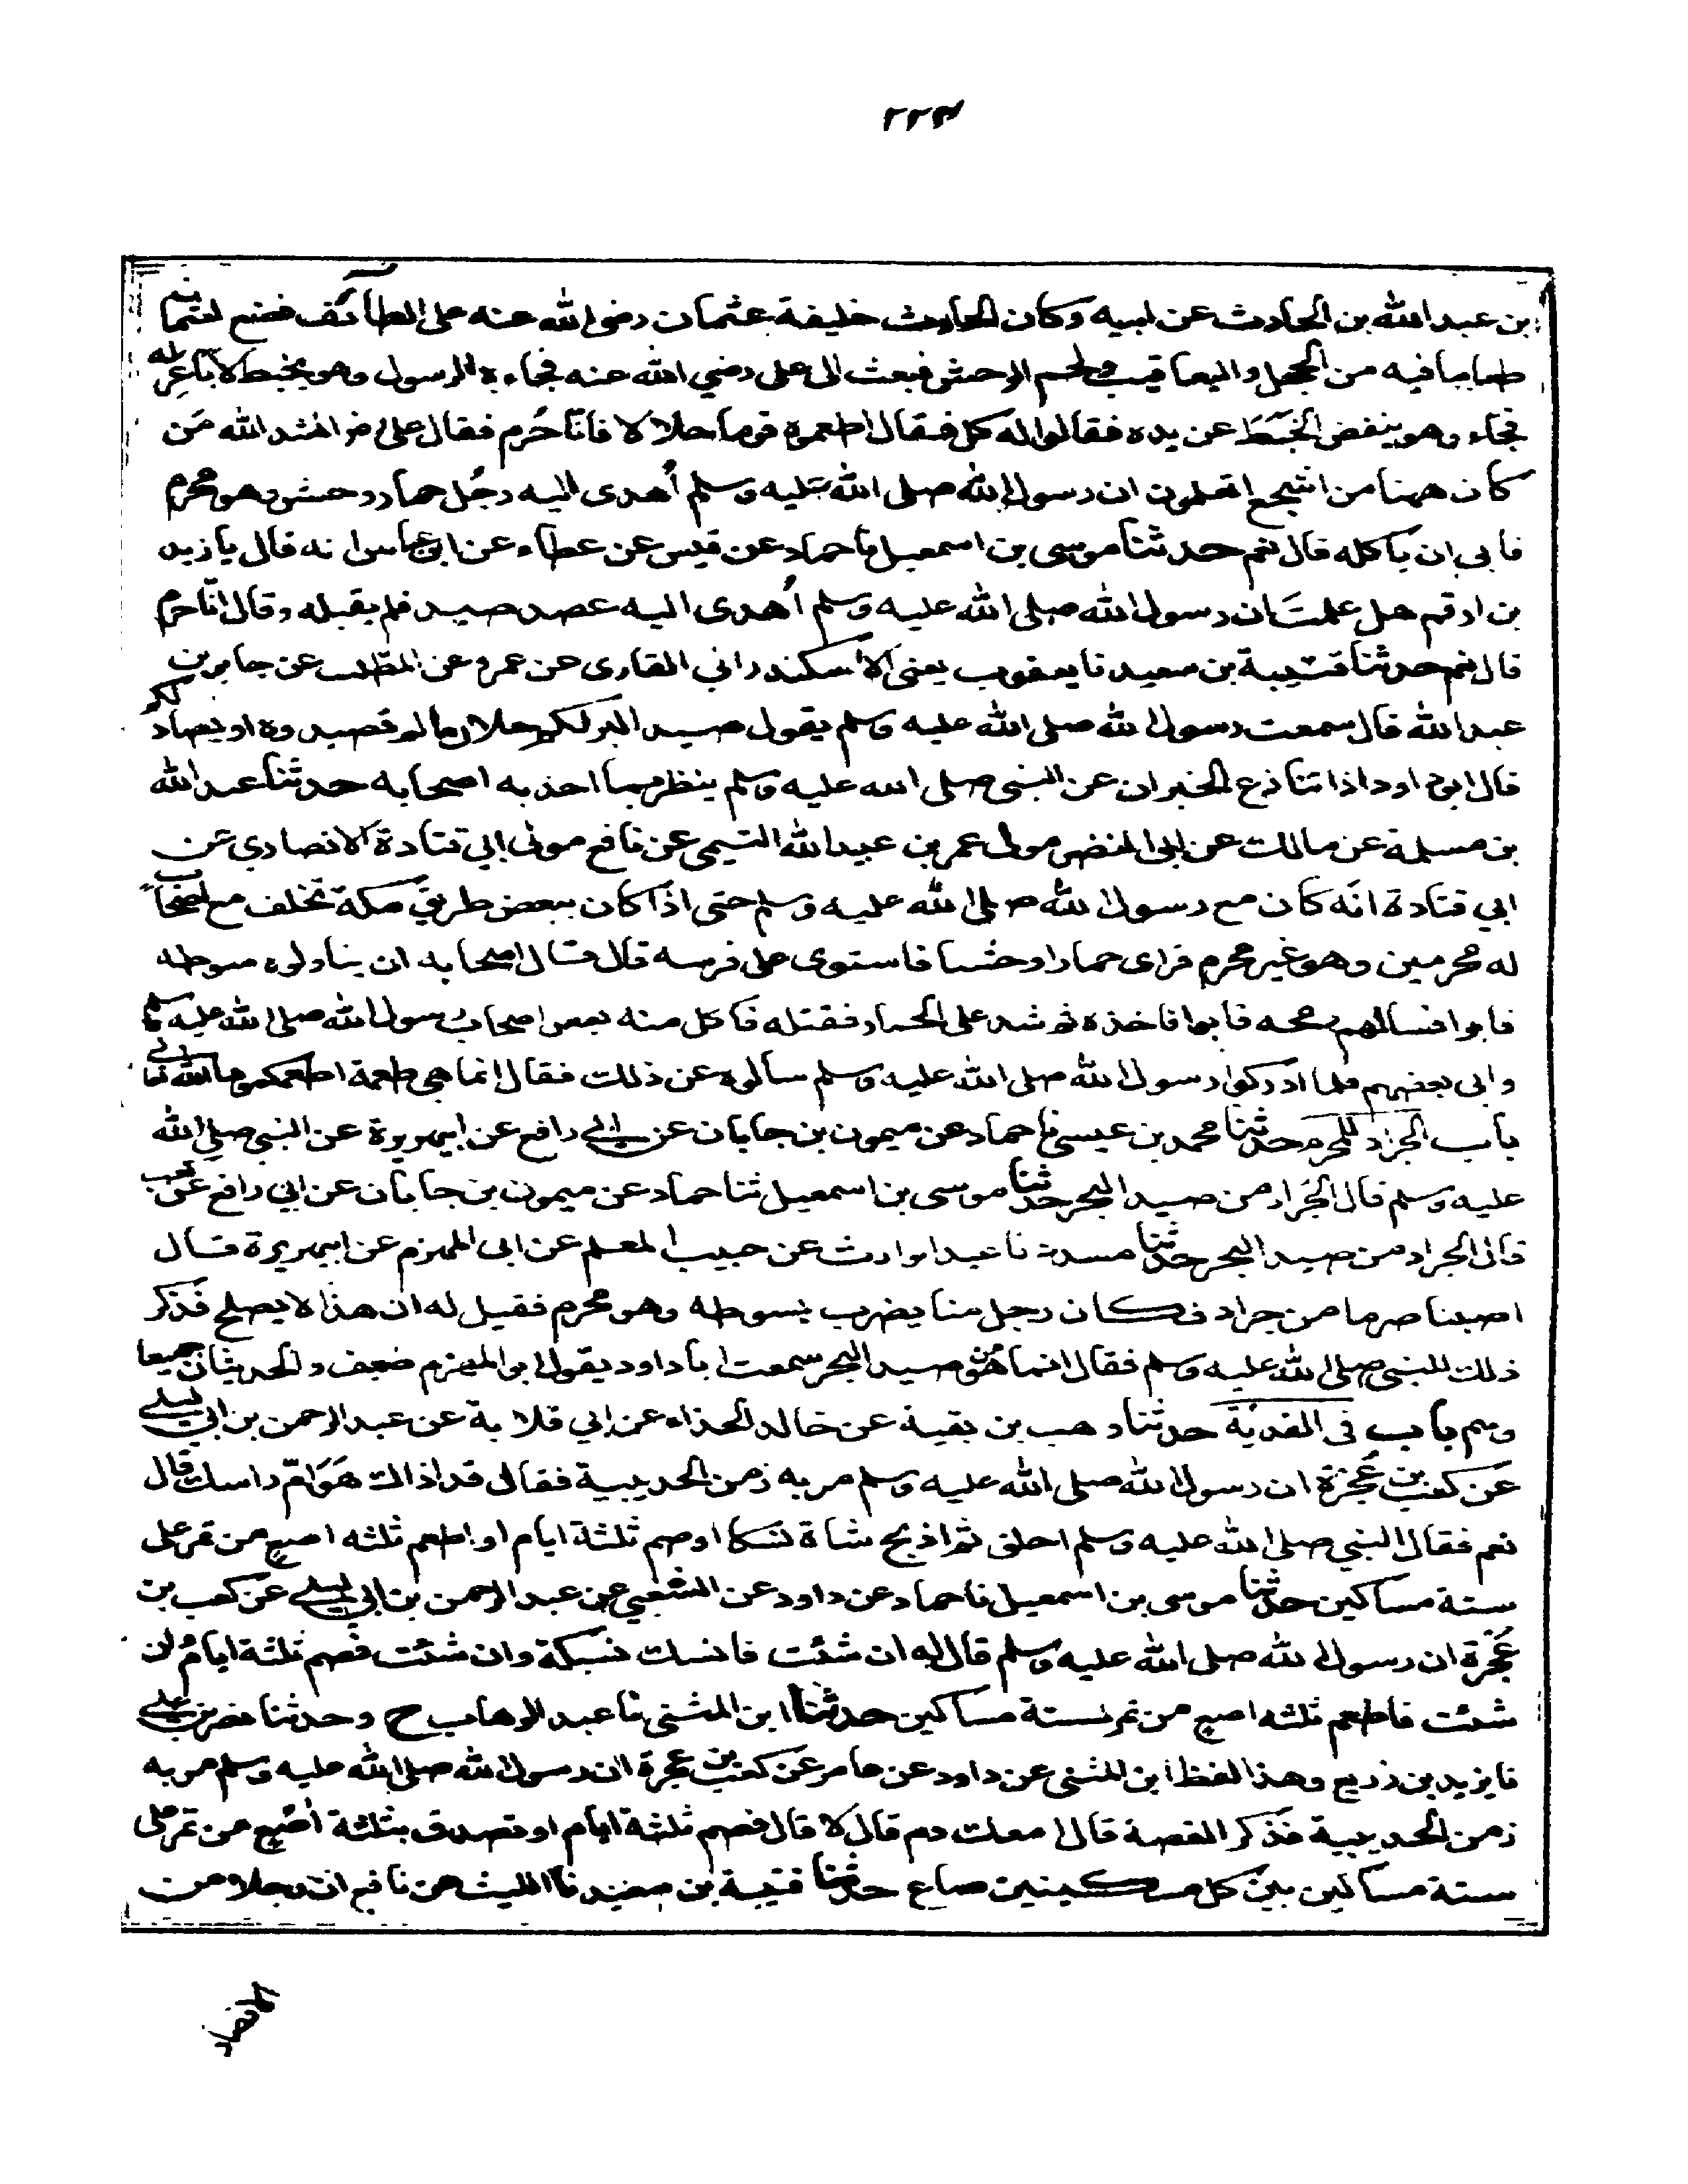 ٢٢٣
بن عبد الله بن الحارث عن ابيه وكان الحارث خليفة عثمان رضي الله عنه على الطائف فصنع لعثمان
طعاما فيه من الحجل واليعاقيب ولحم الوحش فبعث الى على رضي الله عنه فجاءه الرسول وهو يخبط لاباعر له
فجاء وهو ينفض الخَبَط عن يده فقالوا له كل فقال اطعموه قوما حلالا فانّا حُرم فقال على انشد الله مَن
كان ههنا من اشجع اتعلمون ان رسول الله صلى الله عليه وسلم أُهدى اليه رجُل حمار وحش وهو محرم
فابى ان ياكله قال نعم حدثنا موسى بن اسمعيل نا حماد عن قيس عن عطاء عن ابن عباس انه قال يا زيد
بن ارقم هل علمتَ ان رسول الله صلى الله عليه وسلم أُهدى اليه عضد صيد فلم يقبله وقال انّا حرم
قال نعم حدثنا قتيبة بن سعيد نا يعقوب يعنى الاسكندراني القارى عن عمرو عن المطّلب عن جابر بن
عبد الله قال سمعت رسول الله صلى الله عليه وسلم يقول صيد البر لكم حلال ما لم تصيدوه او يصاد لكم
قال ابو داود اذا تنازع الخبران عن النبى صلى الله عليه وسلم ينظر بما اخذ به اصحابه حدثنا عبد الله
بن مسلمة عن مالك عن ابى النضر مولى عمر بن عبيد الله التيمى عن نافع مولى ابي قتادة الانصاري عن
ابي قتادة انّه كان مع رسول الله صلى الله عليه وسلم حتى اذا كان ببعض طريق مكة تخلف مع اصحاب
له محرمين وهو غير محرم فراى حمارا وحشيا فاستوى على فرسه قال فسال اصحابه ان يناولوه سوطه
فابوا فسالهم رمحه فابوا فاخذه ثم شد على الحمار فقتله فاكل منه بعض اصحاب رسول الله صلى الله عليه وسلم
وابى بعضهم فلما ادركوا رسول الله صلى الله عليه وسلم سالوه عن ذلك فقال انما هي طعمة اطعمكموها الله تعالى
باب الجراد للمحرم حدثنا محمد بن عيسى نا حماد عن ميمون بن جابان عن ابي رافع عن ابي هريرة عن النبى صلى الله
عليه وسلم قال الجَرَاد من صيد البحر حدثنا موسى بن اسمعيل ثنا حماد عن ميمون بن جابان عن ابي رافع عن كعب
قال الجراد من صيد البحر حدثنا مسدد نا عبد الوارث عن حبيب المعلم عن ابى المهزم عن ابي هريرة قال
اصبنا صرما من جراد فكان رجل منا يضرب بسوطه وهو محرم فقيل له ان هذا لا يصلح فذكر
ذلك للنبى صلى الله عليه وسلم فقال انما هو من صيد البحر سمعت ابا داود يقول ابو المهزم ضعيف والحديثان جميعا
وهم باب فى الفديَة حدثنا وهب بن بقية عن خالد الحذاء عن ابي قلابة عن عبد الرحمن بن ابي ليلى
عَن كعب بن عُجْرَة ان رسول الله صلى الله عليه وسلم مر به زمن الحديبية فقال قد اذاك هَوَامّ راسك قال
نعم فقال النبي صلى الله عليه وسلم احلق ثم اذبح شاة نسكا او صم ثلثة ايام او اطعم ثلثه اصع من تمر على
ستة مساكين حدثنا موسى بن اسمعيل نا حماد عن داود عن الشعبي عن عبد الرحمن بن ابي ليلى عن كعب بن
عُجْرَة ان رسول الله صلى الله عليه وسلم قال له ان شئت فانسك نسيكة وان شئت فصم ثلثة ايام وان
شئت فاطعم ثلثه اصع من تمر لستة مساكين حدثنا ابن المثنى نا عبد الوهاب ح وحدثنا نصر بن على
نا يزيد بن زريع وهذا لفظ ابن المثنى عن داود عن عامر عن كعب بن عجرة ان رسول الله صلى الله عليه وسلم مر به
زمن الحديبية فذكر القصة قال امعك دم قال لا قال فصم ثلثة ايام او تصدق بثلثة اصع من تمر على
ستة مساكين بين كل مسكينين صاع حدثنا قتيبة بن سعيد نا الليث عن نافع ان رجلا من
الانصار